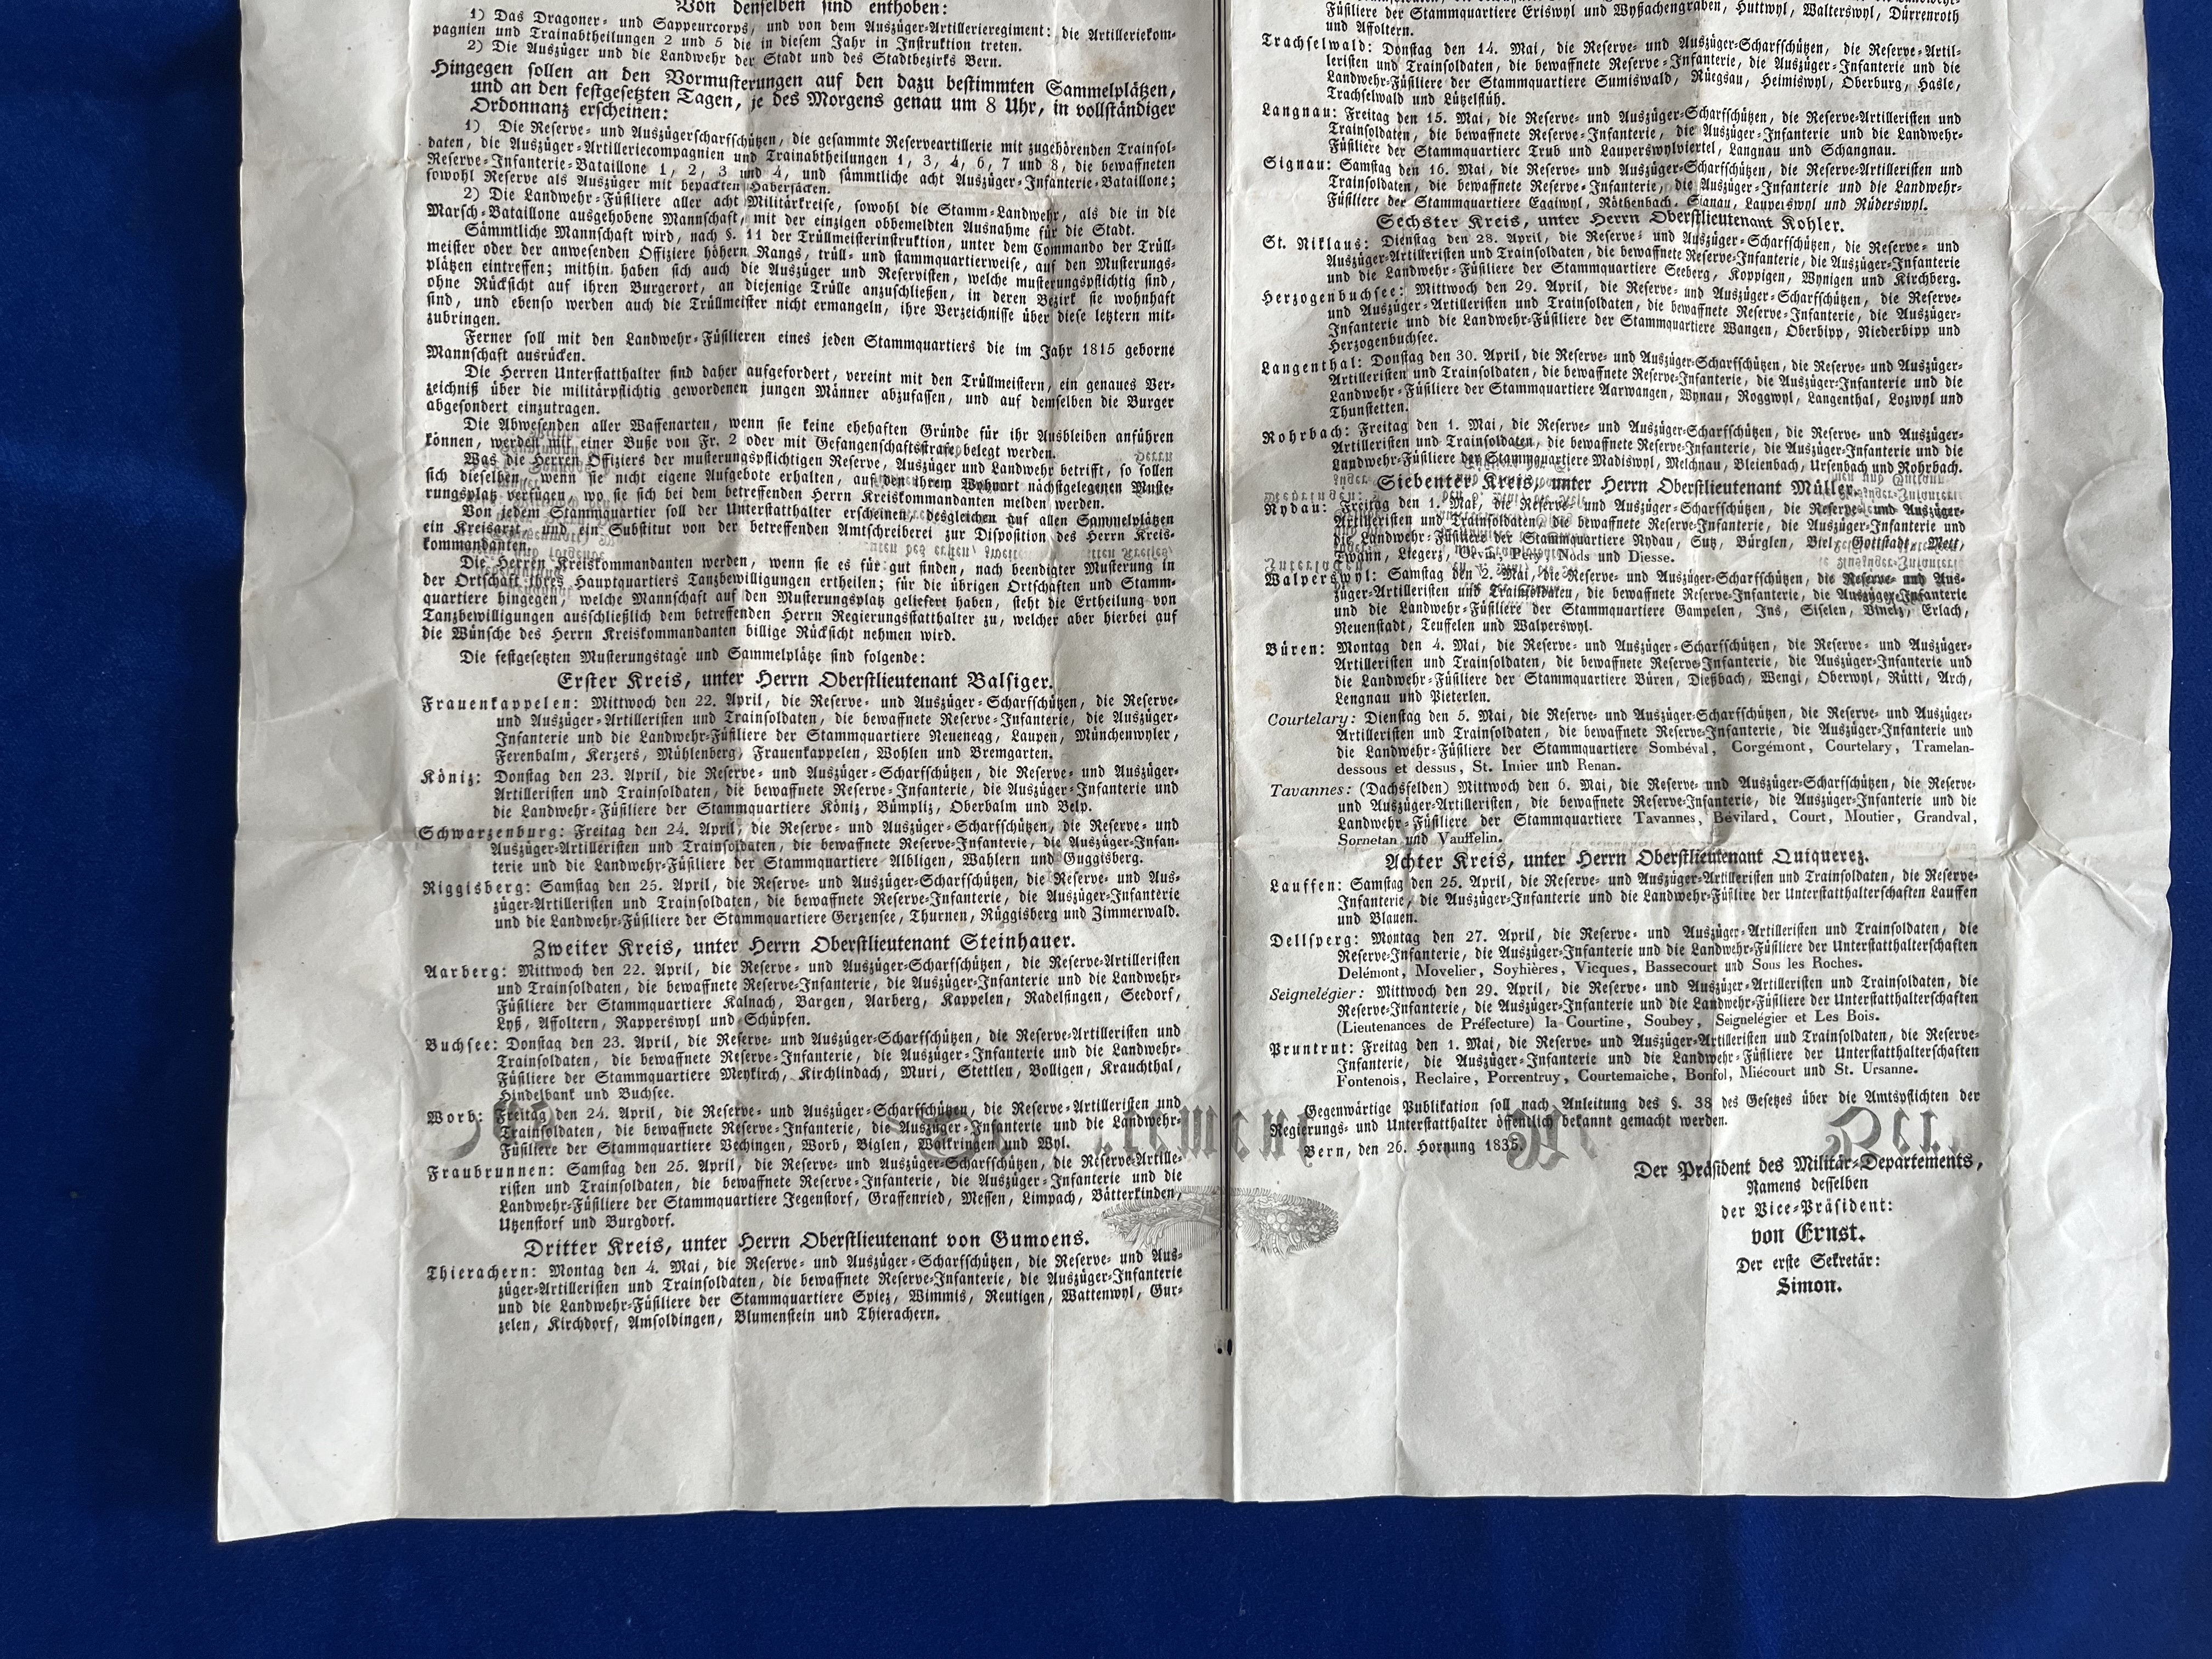 Von denselben sind enthoben:
1) Das Dragoner- und Sappeurcorps, und von dem Auszüger-Artillerieregiment: die Artilleriekom-
pagnien und Trainabtheilungen 2 und 5 die in diesem Jahr in Instruktion treten.
2) Die Auszüger und die Landwehr der Stadt und des Stadtbezirks Bern.
Hingegen sollen an den Vormusterungen auf den dazu bestimmten Sammelplätzen,
und an den festgesetzten Tagen, je des Morgens genau um 8 Uhr, in vollständiger
Ordonnanz erscheinen:
1) Die Reserve- und Auszügerscharfschützen, die gesammte Reserveartillerie mit zugehörenden Trainsol-
daten, die Auszüger-Artilleriecompagnien und Trainabtheilungen 1, 3, 4, 6, 7 und 8, die bewaffneten
Reserve-Infanterie-Bataillone 1, 2, 3 und 4, und sämmtliche acht Auszüger-Infanterie-Bataillone;
sowohl Reserve als Auszüger mit bepackten Habersäcken.
2) Die Landwehr-Füsiliere aller acht Militärkreise, sowohl die Stamm-Landwehr, als die in die
Marsch-Bataillone ausgehobene Mannschaft, mit der einzigen obbemeldten Ausnahme für die Stadt.
Sämmtliche Mannschaft wird, nach §. 11 der Trüllmeisterinstruktion, unter dem Commando der Trüll-
meister oder der anwesenden Offiziere höhern Rangs, trüll- und stammquartierweise, auf den Musterungs-
plätzen eintreffen; mithin haben sich auch die Auszüger und Reservisten, welche musterungspflichtig sind,
ohne Rücksicht auf ihren Burgerort, an diejenige Trülle anzuschließen, in deren Bezirk sie wohnhaft
sind, und ebenso werden auch die Trüllmeister nicht ermangeln, ihre Verzeichnisse über diese letztern mit-
zubringen.
Ferner soll mit den Landwehr-Füsilieren eines jeden Stammquartiers die im Jahr 1815 geborne
Mannschaft ausrücken.
Die Herren Unterstatthalter sind daher aufgefordert, vereint mit den Trüllmeistern, ein genaues Ver-
zeichniß über die militärpflichtig gewordenen jungen Männer abzufassen, und auf demselben die Burger
abgesondert einzutragen.
Die Abwesenden aller Waffenarten, wenn sie keine ehehaften Gründe für ihr Ausbleiben anführen
können, werden mit einer Buße von Fr. 2 oder mit Gefangenschaftsstrafe belegt werden.
Was die Herren Offiziers der musterungspflichtigen Reserve, Auszüger und Landwehr betrifft, so sollen
sich dieselben, wenn sie nicht eigene Aufgebote erhalten, auf den ihrem Wohnort nächstgelegenen Muste-
rungsplatz verfügen, wo sie sich bei dem betreffenden Herrn Kreiskommandanten melden werden.
Von jedem Stammquartier soll der Unterstatthalter erscheinen, desgleichen auf allen Sammelplätzen
ein Kreisarzt, und ein Substitut von der betreffenden Amtschreiberei zur Disposition des Herrn Kreis-
kommandanten.
Die Herren Kreiskommandanten werden, wenn sie es für gut finden, nach beendigter Musterung in
der Ortschaft ihres Hauptquartiers Tanzbewilligungen ertheilen; für die übrigen Ortschaften und Stamm-
quartiere hingegen, welche Mannschaft auf den Musterungsplatz geliefert haben, steht die Ertheilung von
Tanzbewilligungen ausschließlich dem betreffenden Herrn Regierungsstatthalter zu, welcher aber hierbei auf
die Wünsche des Herrn Kreiskommandanten billige Rücksicht nehmen wird.
Die festgesetzten Musterungstage und Sammelplätze sind folgende:
Erster Kreis, unter Herrn Oberstlieutenant Balsiger.
Frauenkappelen: Mittwoch den 22. April, die Reserve- und Auszüger-Scharfschützen, die Reserve-
und Auszüger-Artilleristen und Trainsoldaten, die bewaffnete Reserve-Infanterie, die Auszüger-
Infanterie und die Landwehr-Füsiliere der Stammquartiere Neuenegg, Laupen, Münchenwyler,
Ferenbalm, Kerzers, Mühlenberg, Frauenkappelen, Wohlen und Bremgarten.
Köniz: Donstag den 23. April, die Reserve- und Auszüger-Scharfschützen, die Reserve- und Auszüger-
Artilleristen und Trainsoldaten, die bewaffnete Reserve-Infanterie, die Auszüger-Infanterie und
die Landwehr-Füsiliere der Stammquartiere Köniz, Bümpliz, Oberbalm und Belp.
Schwarzenburg: Freitag den 24. April, die Reserve- und Auszüger-Scharfschützen, die Reserve- und
Auszüger-Artilleristen und Trainsoldaten, die bewaffnete Reserve-Infanterie, die Auszüger-Infan-
terie und die Landwehr-Füsiliere der Stammquartiere Albligen, Wahlern und Guggisberg.
Riggisberg: Samstag den 25. April, die Reserve- und Auszüger-Scharfschützen, die Reserve- und Aus-
züger-Artilleristen und Trainsoldaten, die bewaffnete Reserve-Infanterie, die Auszüger-Infanterie
und die Landwehr-Füsiliere der Stammquartiere Gerzensee, Thurnen, Rüggisberg und Zimmerwald.
Zweiter Kreis, unter Herrn Oberstlieutenant Steinhauer.
Aarberg: Mittwoch den 22. April, die Reserve- und Auszüger-Scharfschützen, die Reserve-Artilleristen
und Trainsoldaten, die bewaffnete Reserve-Infanterie, die Auszüger-Infanterie und die Landwehr-
Füsiliere der Stammquartiere Kalnach, Bargen, Aarberg, Kappelen, Radelfingen, Seedorf,
Lyß, Affoltern, Rapperswyl und Schüpfen.
Buchsee: Donstag den 23. April, die Reserve- und Auszüger-Scharfschützen, die Reserve-Artilleristen und
Trainsoldaten, die bewaffnete Reserve-Infanterie, die Auszüger-Infanterie und die Landwehr-
Füsiliere der Stammquartiere Meykirch, Kirchlindach, Muri, Stettlen, Bolligen, Krauchthal,
Hindelbank und Buchsee.
Worb: Freitag den 24. April, die Reserve- und Auszüger-Scharfschützen, die Reserve-Artilleristen und
Trainsoldaten, die bewaffnete Reserve-Infanterie, die Auszüger-Infanterie und die Landwehr-
Füsiliere der Stammquartiere Vechingen, Worb, Biglen, Walkringen und Wyl.
Fraubrunnen: Samstag den 25. April, die Reserve- und Auszüger-Scharfschützen, die Reserve-Artille-
risten und Trainsoldaten, die bewaffnete Reserve-Infanterie, die Auszüger-Infanterie und die
Landwehr-Füsiliere der Stammquartiere Jegenstorf, Graffenried, Messen, Limpach, Bätterkinden,
Utzenstorf und Burgdorf.
Dritter Kreis, unter Herrn Oberstlieutenant von Gumoens.
Thierachern: Montag den 4. Mai, die Reserve- und Auszüger-Scharfschützen, die Reserve- und Aus-
züger-Artilleristen und Trainsoldaten, die bewaffnete Reserve-Infanterie, die Auszüger-Infanterie
und die Landwehr-Füsiliere der Stammquartiere Spiez, Wimmis, Reutigen, Wattenwyl, Gur-
zelen, Kirchdorf, Amsoldingen, Blumenstein und Thierachern.
Füsiliere der Stammquartiere Eriswyl und Wyßachengraben, Huttwyl, Walterswyl, Dürrenroth
und Affoltern.
Trachselwald: Donstag den 14. Mai, die Reserve- und Auszüger-Scharfschützen, die Reserve-Artil-
leristen und Trainsoldaten, die bewaffnete Reserve-Infanterie, die Auszüger-Infanterie und die
Landwehr-Füsiliere der Stammquartiere Sumiswald, Rüegsau, Heimiswyl, Oberburg, Hasle,
Trachselwald und Lützelflüh.
Langnau: Freitag den 15. Mai, die Reserve- und Auszüger-Scharfschützen, die Reserve-Artilleristen und
Trainsoldaten, die bewaffnete Reserve-Infanterie, die Auszüger-Infanterie und die Landwehr-
Füsiliere der Stammquartiere Trub und Lauperswylviertel, Langnau und Schangnau.
Signau: Samstag den 16. Mai, die Reserve- und Auszüger-Scharfschützen, die Reserve-Artilleristen und
Trainsoldaten, die bewaffnete Reserve-Infanterie, die Auszüger-Infanterie und die Landwehr-
Füsiliere der Stammquartiere Eggiwyl, Röthenbach, Signau, Lauperswyl und Rüderswyl.
Sechster Kreis, unter Herrn Oberstlieutenant Kohler.
St. Niklaus: Dienstag den 28. April, die Reserve- und Auszüger-Scharfschützen, die Reserve- und
Auszüger-Artilleristen und Trainsoldaten, die bewaffnete Reserve-Infanterie, die Auszüger-Infanterie
und die Landwehr-Füsiliere der Stammquartiere Seeberg, Koppigen, Wynigen und Kirchberg.
Herzogenbuchsee: Mittwoch den 29. April, die Reserve- und Auszüger-Scharfschützen, die Reserve-
und Auszüger-Artilleristen und Trainsoldaten, die bewaffnete Reserve-Infanterie, die Auszüger-
Infanterie und die Landwehr-Füsiliere der Stammquartiere Wangen, Oberbipp, Niederbipp und
Herzogenbuchsee.
Langenthal: Donstag den 30. April, die Reserve- und Auszüger-Scharfschützen, die Reserve- und Auszüger-
Artilleristen und Trainsoldaten, die bewaffnete Reserve-Infanterie, die Auszüger-Infanterie und die
Landwehr-Füsiliere der Stammquartiere Aarwangen, Wynau, Roggwyl, Langenthal, Lozwyl und
Thunstetten.
Rohrbach: Freitag den 1. Mai, die Reserve- und Auszüger-Scharfschützen, die Reserve- und Auszüger-
Artilleristen und Trainsoldaten, die bewaffnete Reserve-Infanterie, die Auszüger-Infanterie und die
Landwehr-Füsiliere der Stammquartiere Madiswyl, Melchnau, Bleienbach, Ursenbach und Rohrbach.
Siebenter Kreis, unter Herrn Oberstlieutenant Müller.
Nydau: Freitag den 1. Mai, die Reserve- und Auszüger-Scharfschützen, die Reserve- und Auszüger-
Artilleristen und Trainsoldaten, die bewaffnete Reserve-Infanterie, die Auszüger-Infanterie und
die Landwehr-Füsiliere der Stammquartiere Nydau, Sutz, Bürglen, Biel, Gottstadt, Mett,
Twann, Liegerz, Orvin, Pery, Nods und Diesse.
Walperswyl: Samstag den 2. Mai, die Reserve- und Auszüger-Scharfschützen, die Reserve- und Aus-
züger-Artilleristen und Trainsoldaten, die bewaffnete Reserve-Infanterie, die Auszüger-Infanterie
und die Landwehr-Füsiliere der Stammquartiere Gampelen, Ins, Siselen, Vinelz, Erlach,
Neuenstadt, Teuffelen und Walperswyl.
Büren: Montag den 4. Mai, die Reserve- und Auszüger-Scharfschützen, die Reserve- und Auszüger-
Artilleristen und Trainsoldaten, die bewaffnete Reserve-Infanterie, die Auszüger-Infanterie und
die Landwehr-Füsiliere der Stammquartiere Büren, Dießbach, Wengi, Oberwyl, Rütti, Arch,
Lengnau und Pieterlen.
Courtelary: Dienstag den 5. Mai, die Reserve- und Auszüger-Scharfschützen, die Reserve- und Auszüger-
Artilleristen und Trainsoldaten, die bewaffnete Reserve-Infanterie, die Auszüger-Infanterie und
die Landwehr-Füsiliere der Stammquartiere Sombéval, Corgémont, Courtelary, Tramelan-
dessous et dessus, St. Imier und Renan.
Tavannes: (Dachsfelden) Mittwoch den 6. Mai, die Reserve- und Auszüger-Scharfschützen, die Reserve-
und Auszüger-Artilleristen, die bewaffnete Reserve-Infanterie, die Auszüger-Infanterie und die
Landwehr-Füsiliere der Stammquartiere Tavannes, Bévilard, Court, Moutier, Grandval,
Sornetan und Vauffelin.
Achter Kreis, unter Herrn Oberstlieutenant Quiquerez.
Lauffen: Samstag den 25. April, die Reserve- und Auszüger-Artilleristen und Trainsoldaten, die Reserve-
Infanterie, die Auszüger-Infanterie und die Landwehr-Füslire der Unterstatthalterschaften Lauffen
und Blauen.
Dellsperg: Montag den 27. April, die Reserve- und Auszüger-Artilleristen und Trainsoldaten, die
Reserve-Infanterie, die Auszüger-Infanterie und die Landwehr-Füsiliere der Unterstatthalterschaften
Delémont, Movelier, Soyhières, Vicques, Bassecourt und Sous les Roches.
Seignelégier: Mittwoch den 29. April, die Reserve- und Auszüger-Artilleristen und Trainsoldaten, die
Reserve-Infanterie, die Auszüger-Infanterie und die Landwehr-Füsiliere der Unterstatthalterschaften
(Lieutenances de Préfecture) la Courtine, Soubey, Seignelégier et Les Bois.
Pruntrut: Freitag den 1. Mai, die Reserve- und Auszüger-Artilleristen und Trainsoldaten, die Reserve-
Infanterie, die Auszüger-Infanterie und die Landwehr-Füsiliere der Unterstatthalterschaften
Fontenois, Reclaire, Porrentruy, Courtemaiche, Bonfol, Miécourt und St. Ursanne.
Gegenwärtige Publikation soll nach Anleitung des §. 38 des Gesetzes über die Amtspflichten der
Regierungs- und Unterstatthalter öffentlich bekannt gemacht werden.
Bern, den 26. Hornung 1835.
Der Präsident des Militär-Departements,
Namens desselben
der Vice-Präsident:
von Ernst.
Der erste Sekretär:
Simon.